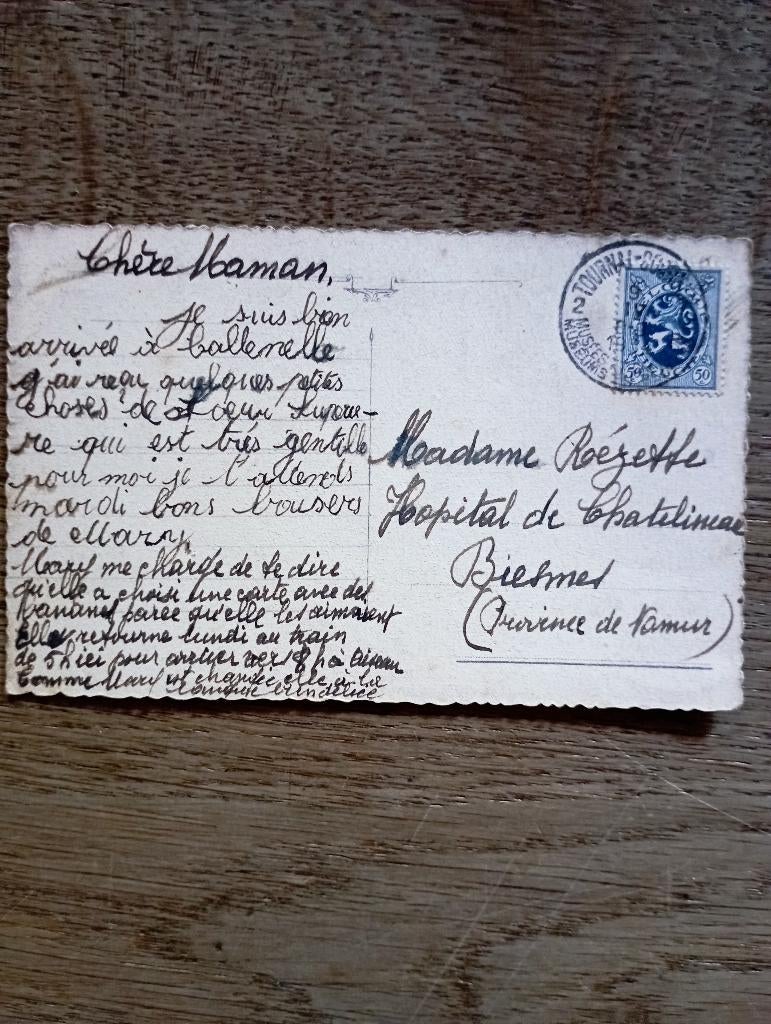 Chère Maman,
je suis bien
arrivée à Callenelle
j'ai reçu quelques petites
choses de Soeur Supérieu-
re qui est très gentille
pour moi je t'attends
mardi bons baisers
de Mary
Mary me charge de te dire
qu'elle a choisi une carte avec des
bananes parce qu'elle les aimaient
Elle retourne lundi au train
de 5h ici pour arriver vers 8h à
comme Mary est changée elle a la
langue
TOURNAI-DO
2
MUSÉES
MUSEUMS
BELGIQUE
BELGIE
50 50
Madame Rézette
Hopital de Chatelineau
Biesmes
(Province de Namur)